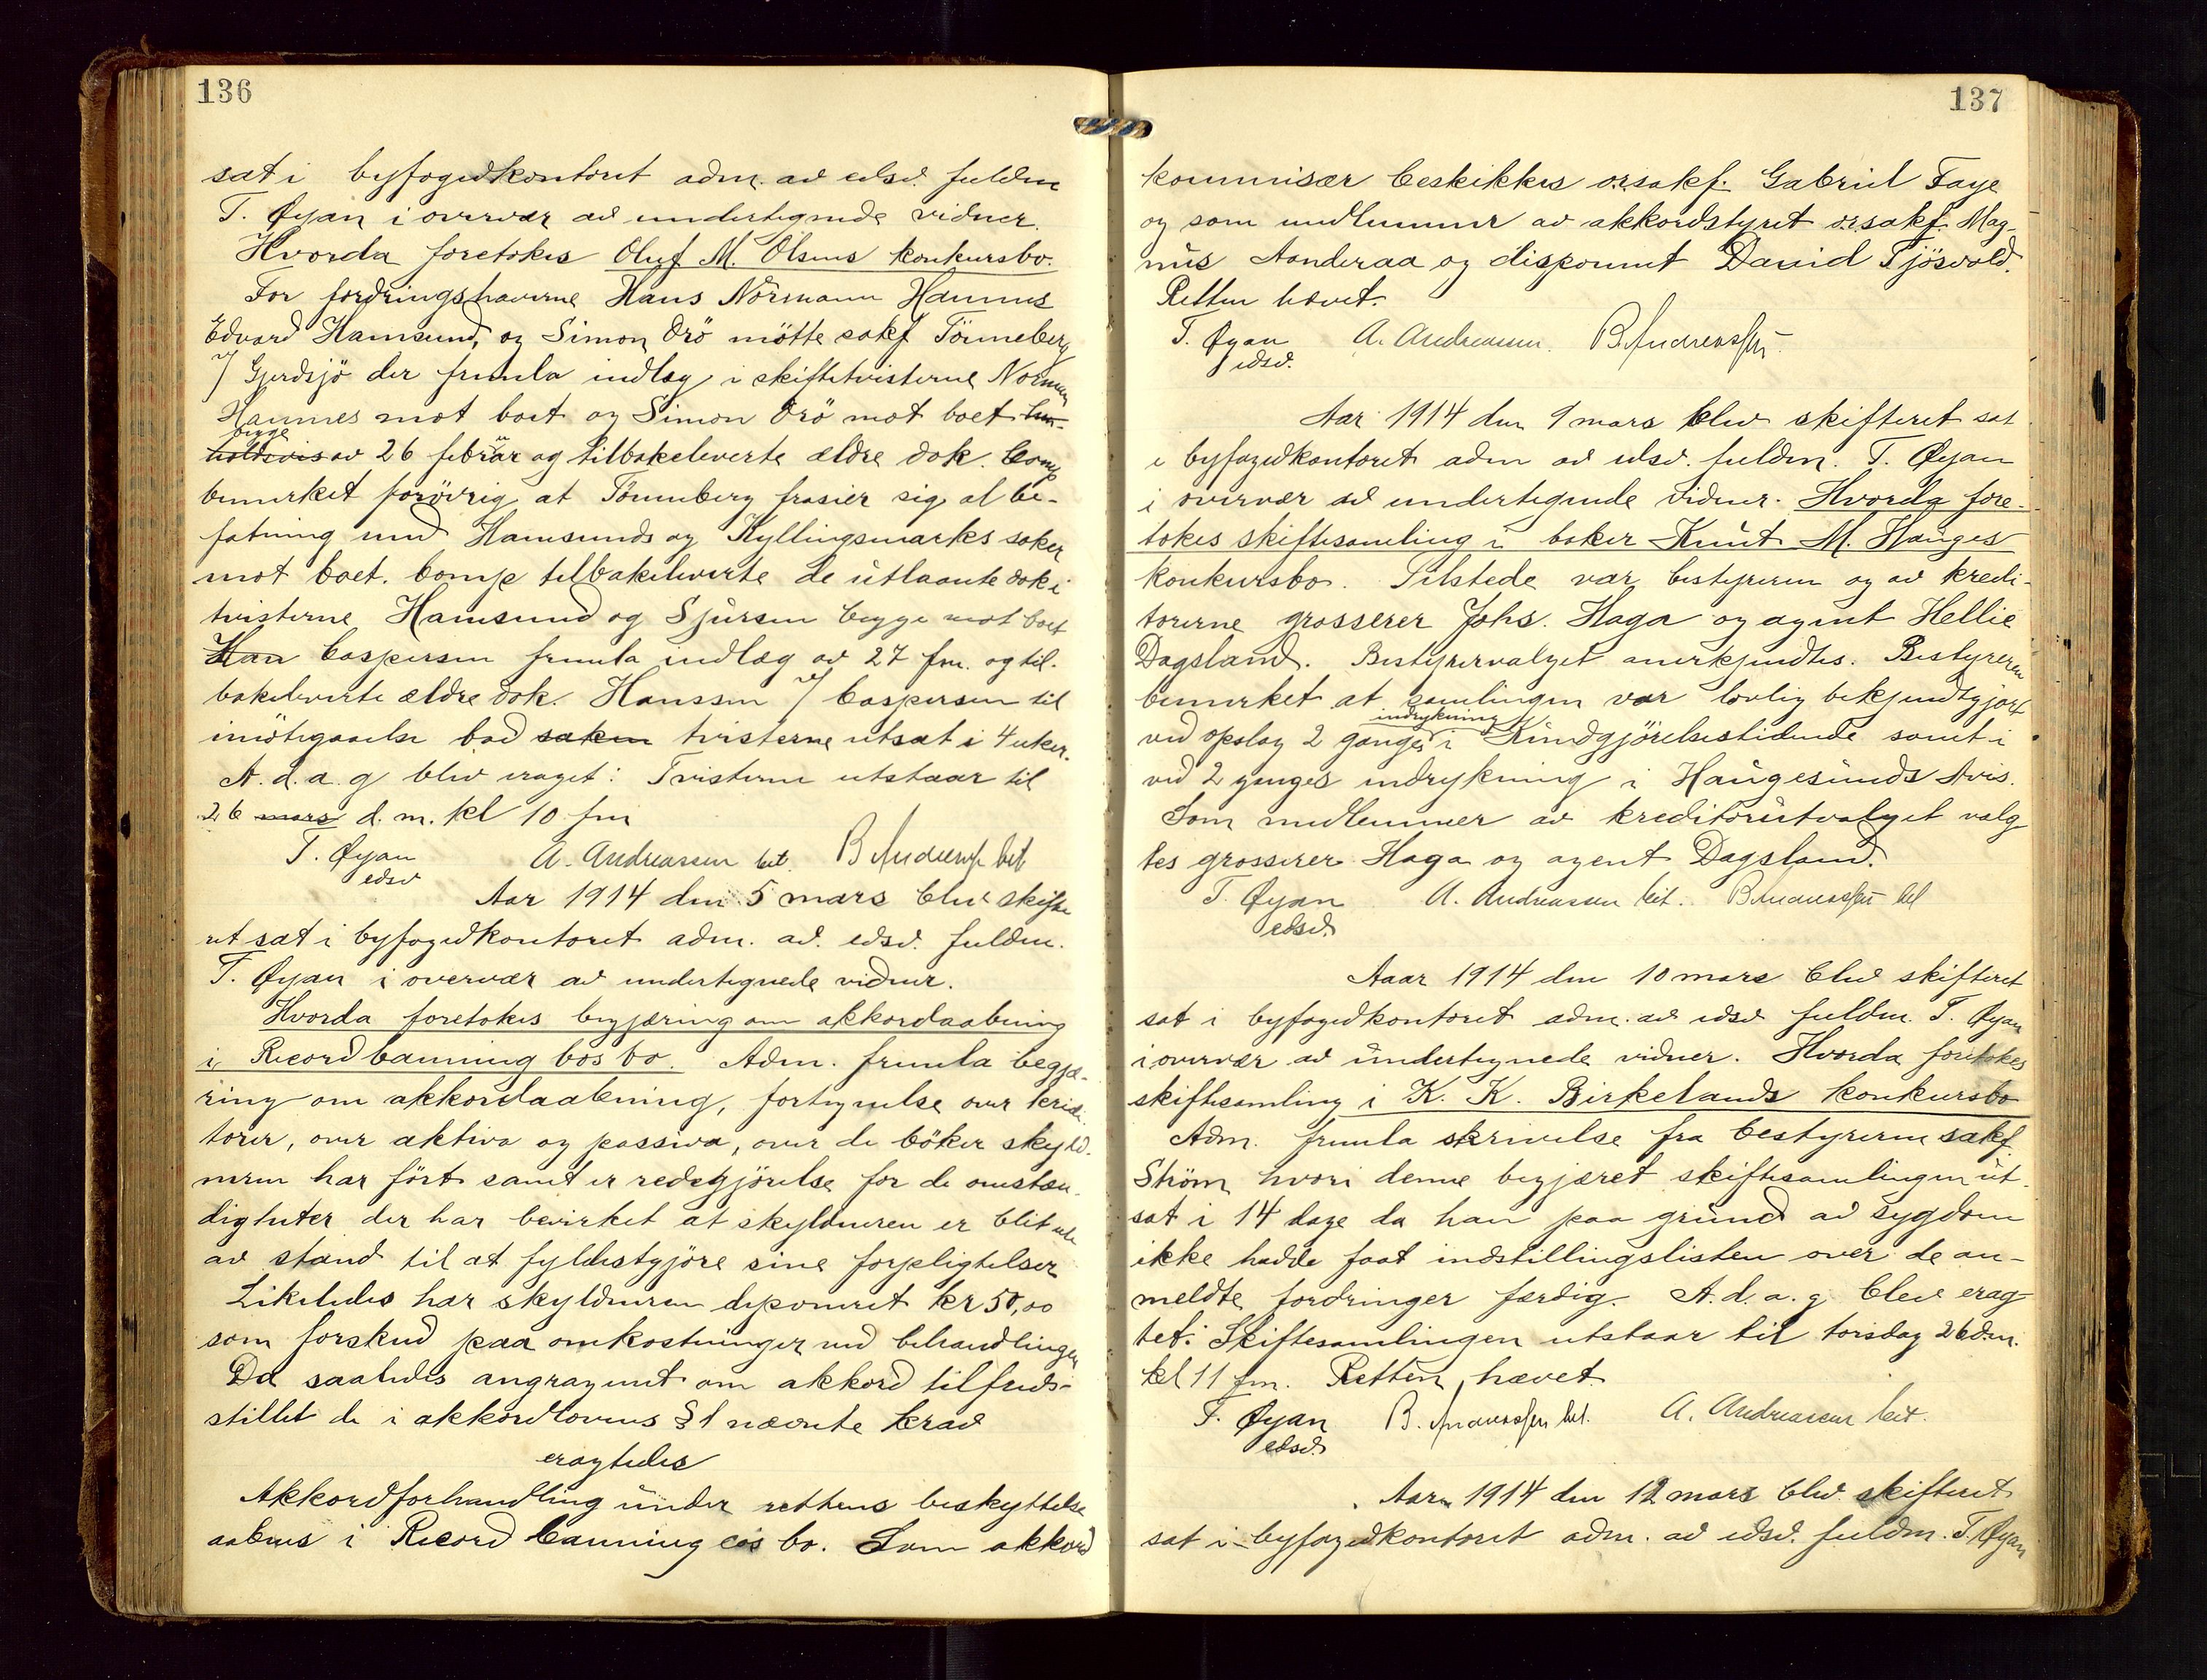 136
sat i byfogedkontoret adm. av edsv. fuldm
T. Øyan i overvær av undertegnede vidner.
Hvorda foretokes Oluf M. Olsens konkursbo.
For fordringshaverne Hans Normann Hannes
Edvard Hamsund, og Simon Orö mötte sakf Tönneberg
v/ Gjerdsjö der fremla indlæg i skiftetvisterne Norman
Hannes mot boet og Simon Orö mot boet hen-
begge
holdsvis av 26 februar og tilbakeleverte ældre dok. Comp
bemerket forövrig at Tönneberg frasier sig al be-
fatning med Hamsunds og Kyllingsmarks saker
mot boet. Comp tilbakeleverte de utlaante dok i
tvisterne Hamsund og Sjursen begge mot boet
Han Caspersen fremla indlæg av 27 fm. og til-
bakeleverte ældre dok. Hanssen v/ Caspersen til
imötegaaelse bad saken tvisterne utsat i 4 uker.
A. d. a. g blev eraget: Tvisterne utstaar til
26 mars d. m. kl 10 fm
T. Øyan A. Andreassen bet. B Andersen bet
edsv
Aar 1914 den 5 mars blev skifte
ret sat i byfogedkontoret adm. av. edsv. fuldm.
T. Øyan i overvær av undertegnede vidner.
Hvorda foretokes begjæring om akkordaabning
i Record Canning Co's bo. Adm. fremla begjæ-
ring om akkordaabning, fortegnelse over kredi-
torer, over aktiva og passiva, over de böker skyld-
neren har fört samt er redegjörelse for de omstæn-
digheter der har bevirket at skyldneren er blit ute
av stand til at fyldestgjöre sine forpligtelser
Likeledes har skyldneren deponeret kr 50,00
som forskud paa omkostninger ved behandlingen
Da saaledes angragenet om akkord tilfreds-
stillet de i akkordlovens § 1 nævnte krav
eragtedes
Akkordforhandling under rettens beskyttelse
aabnes i Record Canning Co's bo. Som akkord
137
kommisær beskikkes o.r.sakf. Gabriel Faye
og som medlemmer av akkordstyret o.r.sakf. Mag-
nus Aanderaa og disponent David Tjösvold.
Retten hævet.
T. Øyan A. Andreassen. B. Andreassen.
edsv.
Aar 1914 den 9 mars blev skifteret sat
i byfogedkontoret adm av edsv. fuldm. T. Øyan
i overvær av undertegnede vidner. Hvorda fore-
tokes skiftesamling i baker Knut M. Hauges
konkursbo. Tilstede var bestyreren og av kredi-
torerne grosserer Johs. Haga og agent Hellie
Dagsland. Bestyrervalget anerkjendtes. Bestyreren
bemerket at samlingen var lovlig bekjendtgjort
indrykning
ved opslag 2 ganges i Kundgjörelsestidende samt i
ved 2 ganges indrykning i Haugesunds Avis.
Som medlemmer av kreditorutvalget valg
tes grosserer Haga og agent Dagsland.
T. Øyan A. Andreassen bet. B. Andreassen bet
edsv.
Aaar 1914 den 10 mars blev skifteret
sat i byfogedkontoret adm. av edsv fuldm. T. Øyan
i overvær av undertegnede vidner. Hvorda foretokes
skiftesamling i K. K. Birkelands konkursbo
Adm. fremla skrivelse fra bestyreren sakf.
Ström hvori denne begjæret skiftesamlingen ut-
sat i 14 dage da han paa grund av sygdom
ikke hadde faat indstillingslisten over de an-
meldte fordringer færdig. A. d. a. g blev erag-
tet: Skiftesamlingen utstaar til torsdag 26 d.m.
kl 11 fm. Retten hævet.
T. Øyan B. Andreassen bet. A. Andreassen bet.
edsv.
Aar 1914 den 12 mars blev skifteret
sat i byfogedkontoret adm. av edsv. fuldm. T. Øyan